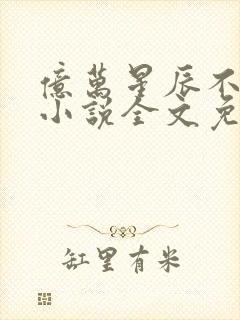 億萬星辰不
小說全文免
缸里有米